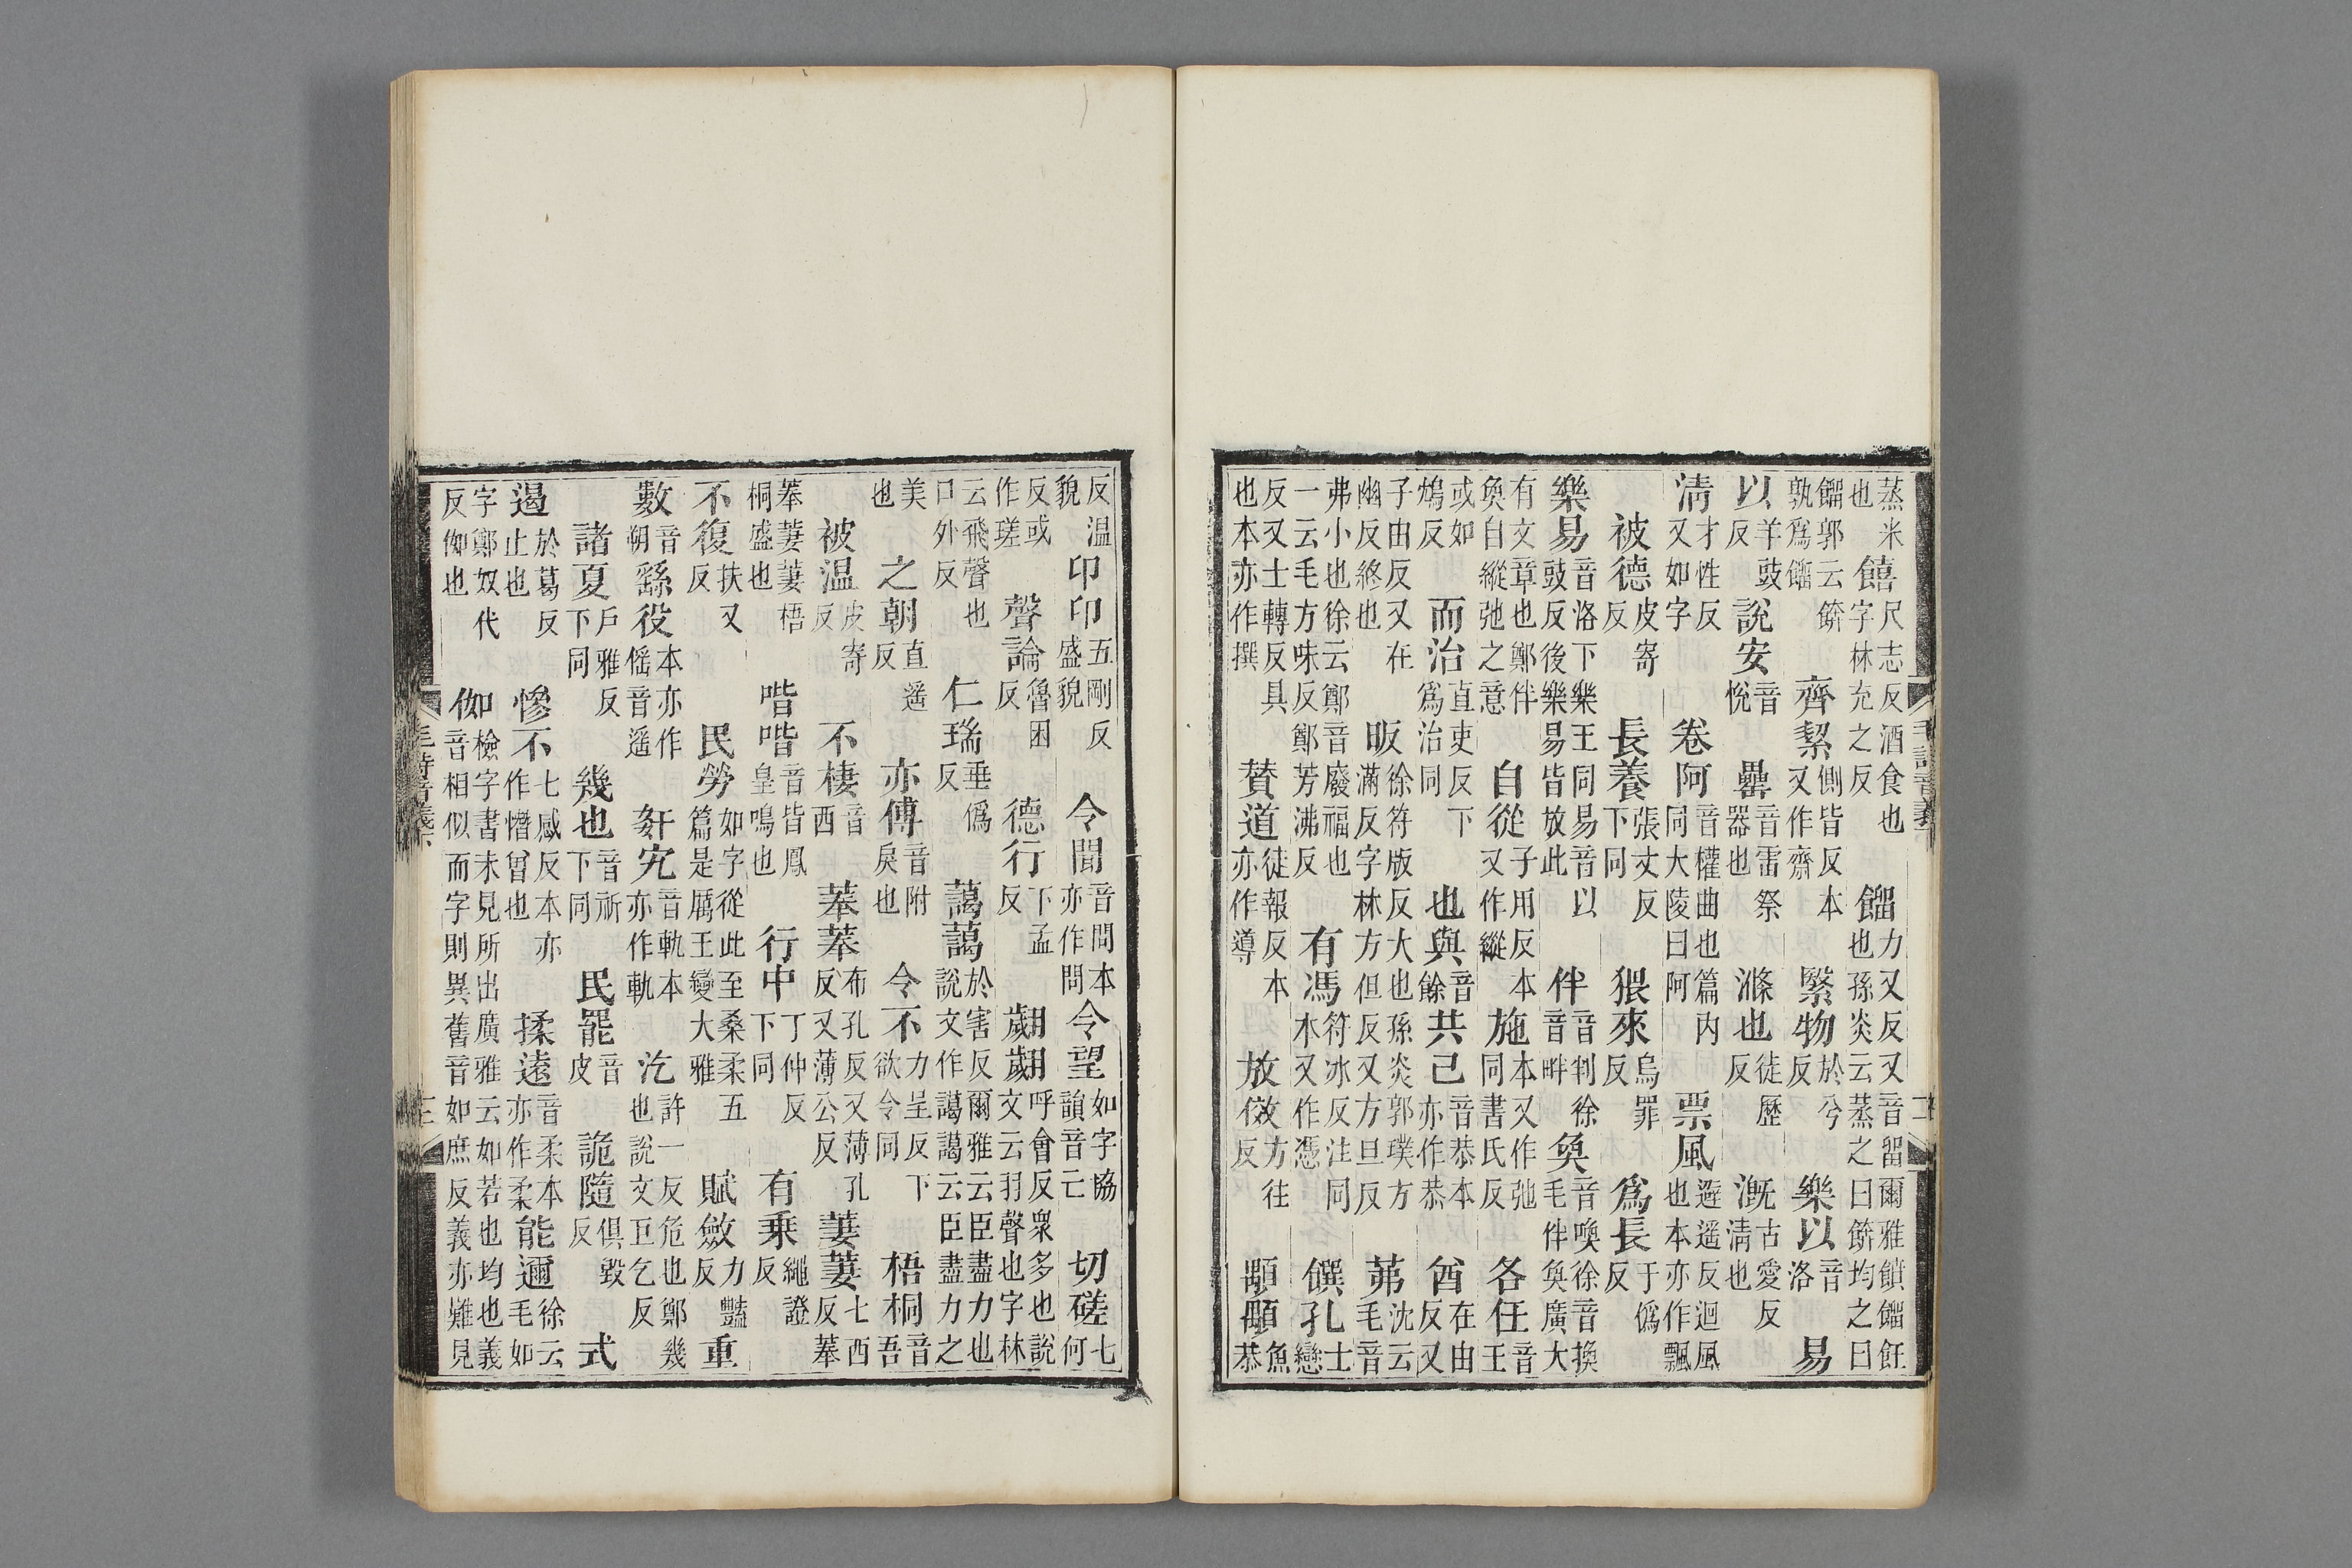 蒸米也饎尺志反酒食也字林充之反餾力又反又音畱爾雅饙餾飪也孫炎云蒸之曰餴均之曰
餾郭云餴孰爲餾齊絜側皆反本又作齋繄物於兮反樂以音洛易
以羊豉反說安音悅罍音雷祭器也滌也徒歷反漑古愛反清也
清才性反又如字卷阿音權曲也篇内同大陵曰阿票風避遥反迴風也本亦作飄
被德皮寄反長養張丈反下同猥來烏罪反爲長于僞反
樂易音洛下樂王同易音以豉反後樂易皆放此伴音判徐音畔奐音喚徐音換毛伴奐廣大
有文章也鄭伴奐自縱弛之意自從子用反本又作縱施本又作弛同書氏反各任音王
或如鴆反而治直吏反下爲治同也與音餘共己音恭本亦作恭酋在由反又
子由反又在幽反終也昄徐符版反大也孫炎郭璞方滿反字林方但反又方旦反茀沈云毛音
弗小也徐云鄭音廢福也一云毛方味反鄭芳沸反有馮符冰反注同本又作憑饌孔士戀
反又士轉反具也本亦作撰贊道徒報反本亦作導放傚方往反顒顒魚恭
反温貌卬卬五剛反盛貌令聞音問本亦作問令望如字協韻音亡切磋七何
反或作瑳聲論魯困反德行下孟反翽翽呼會反衆多也說文云羽聲也字林
云飛聲也口外反仁瑞垂僞反藹藹於害反爾雅云臣盡力也說文作譪譪云臣盡力之
美也之朝直遥反亦傅音附戾也令不力呈反下欲令同梧桐音吾
被温皮寄反不棲音西菶菶布孔反又薄孔反又薄公反萋萋七西反菶
菶萋萋梧桐盛也喈喈音皆鳳皇鳴也行中丁仲反下同有乗繩證反
不復扶又反民勞如字從此至桑柔五篇是厲王變大雅賦斂力豔反重
數音朔繇役本亦作傜音遥姧宄音軌本亦作軌汔許一反危也鄭幾也說文卫乞反
諸夏戶雅反下同幾也音祈下同民罷音皮詭隨俱毀反式
遏於葛反止也慘不七感反本亦作憯曾也揉遠音柔本亦作柔能邇徐云毛如
字鄭奴代反伽也伽檢字書未見所出廣雅云如若也均也義音相似而字則異舊音如庶反義亦難見